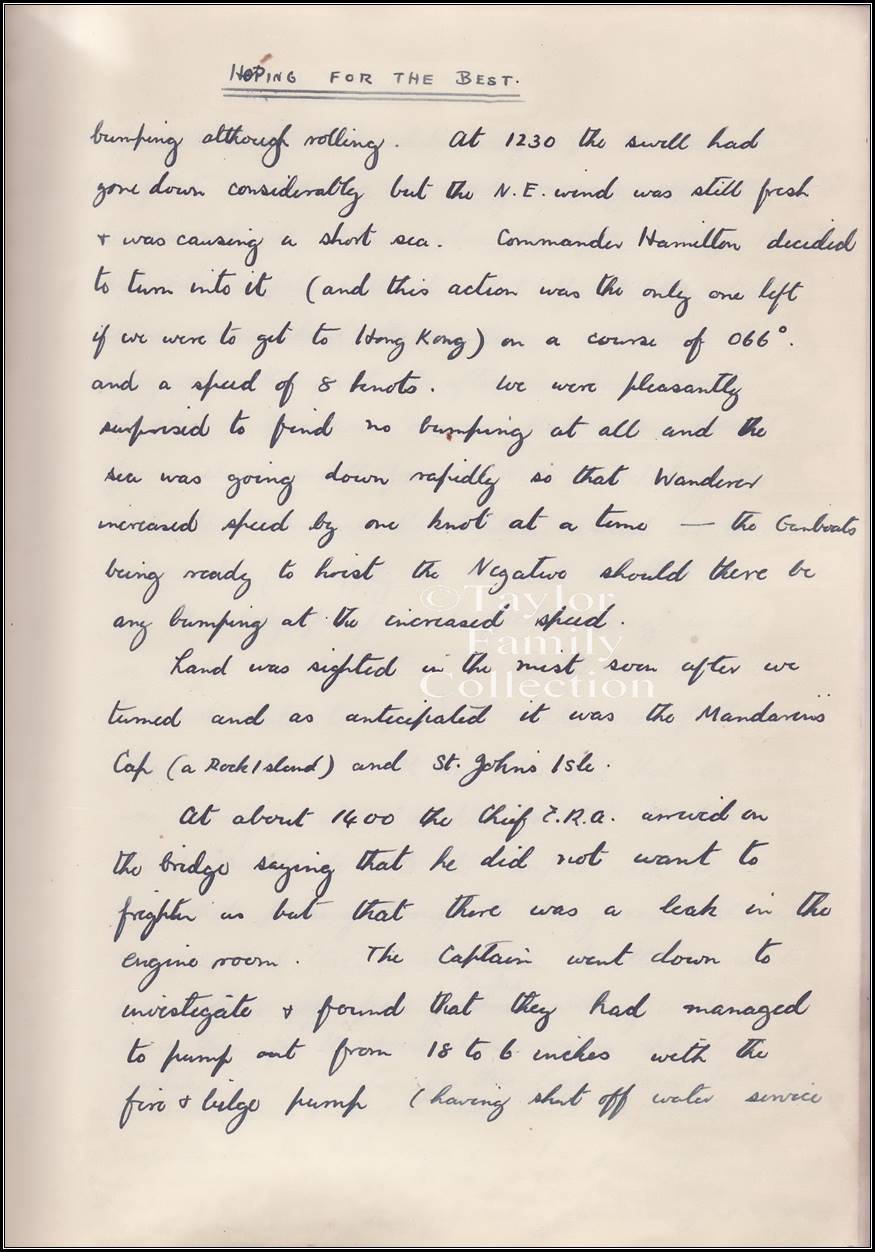 HOPING FOR THE BEST.
bumping although rolling. At 1230 the swell had
gone down considerably but the N.E. wind was still fresh
& was causing a short sea. Commander Hamilton decided
to turn into it (and this action was the only one left
if we were to get to Hong Kong) on a course of 066°.
and a speed of 8 knots. We were pleasantly
surprised to find no bumping at all and the
sea was going down rapidly so that Wanderer
increased speed by one knot at a time — the Gunboats
being ready to hoist the Negative should there be
any bumping at the increased speed.
Land was sighted in the mist soon after we
turned and as anticipated it was the Mandarin's
Cap (a Rock Island) and St. John's Isle.
At about 1400 the Chief E.R.A. arrived on
the bridge saying that he did not want to
frighten us but that there was a leak in the
engine room. The Captain went down to
investigate & found that they had managed
to pump out from 18 to 6 inches with the
fire & bilge pump (having shut off water service
©Taylor
Family
Collection